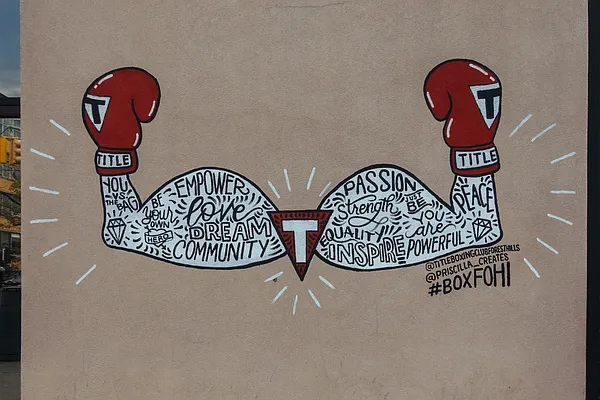 T
TITLE
YOU
VS.
THE
BAG
BE
YOUR
OWN
HERO
EMPOWER
love
DREAM
COMMUNITY
T
PASSION
Strength
EQUALITY
INSPIRE
JUST
BE
YOU
are
POWERFUL
PEACE
T
TITLE
@TITLEBOXINGCLUBFORESTHILLS
@PRISCILLA_CREATES
#BOXFOHI